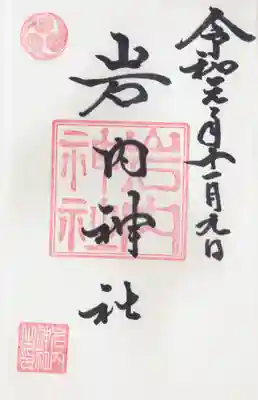 令和元年十一月九日
岩内神社
岩内神社